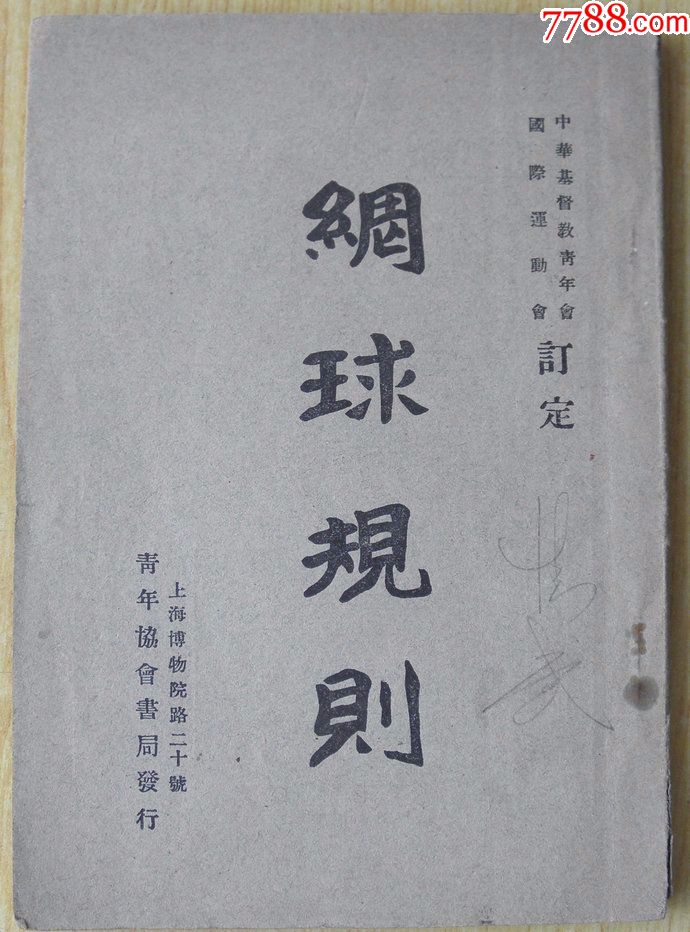 7788.com
中華基督教青年會
國際運動會
訂定
網球規則
上海博物院路二十號
青年協會書局發行